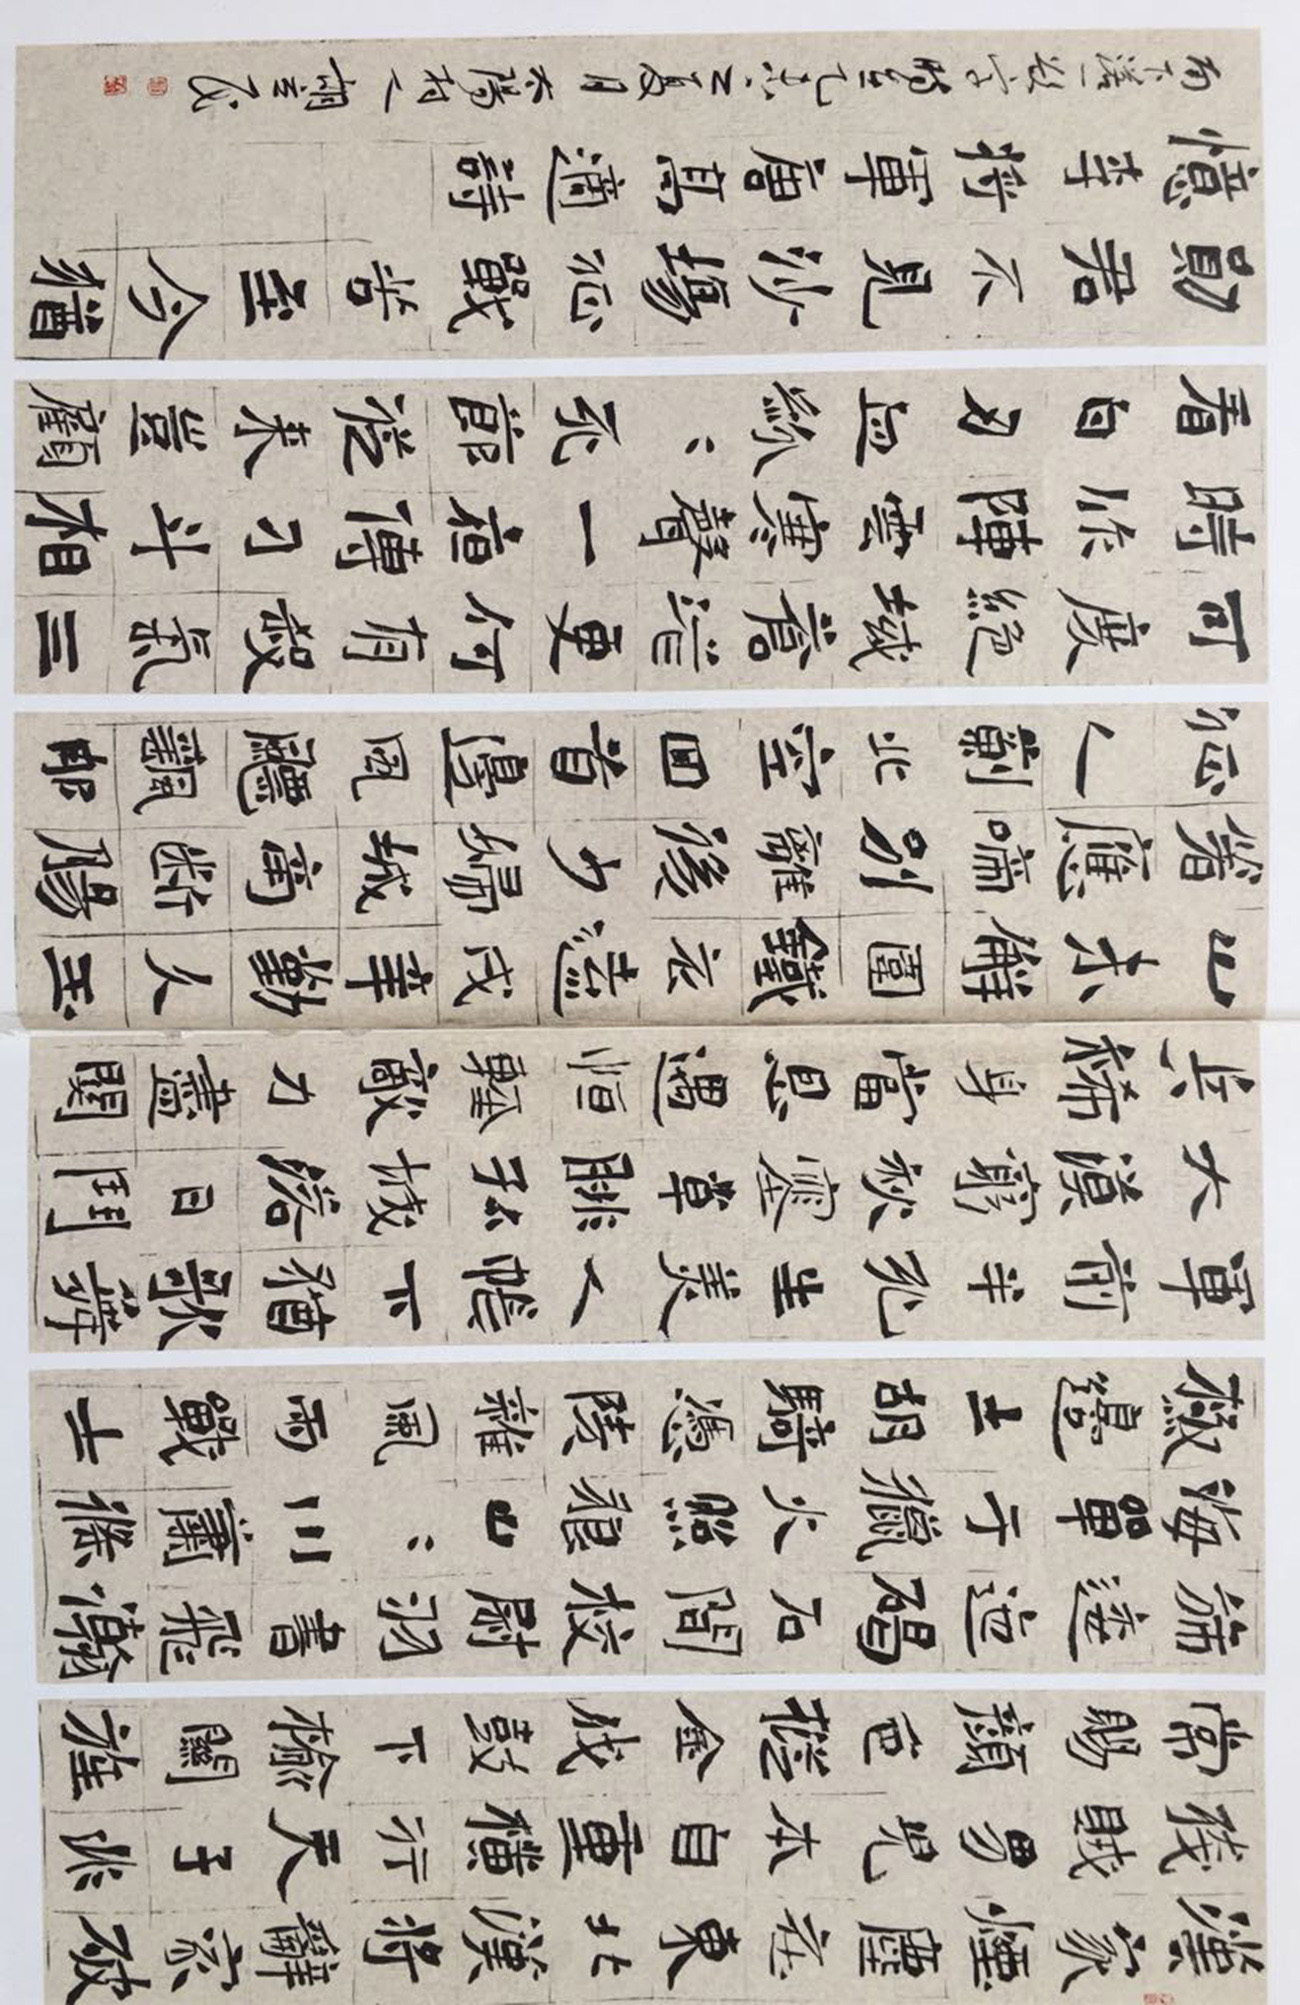 漢家煙塵在東北漢將辭家破
殘賊男兒本自重橫行天子非
常賜顏色摐金伐鼓下榆關旌
旆逶迤碣石間校尉羽書飛瀚
海單于獵火照狼山:川蕭條
極邊土胡騎憑陵雜風雨戰士
軍前半死生美人帳下猶歌舞
大漠窮秋塞草腓孤城落日鬥
兵稀身當恩遇恒輕敵力盡關
山未解圍鐵衣遠戍辛勤久玉
箸應啼別離後少婦城南斷腸
征人薊北空回首邊風飃飄那
可度絕域蒼茫更何有殺氣三
時作陣雲寒聲一亱傳刁斗相
看白刃血紛:死節從來豈顧
勛君不見沙場征戰苦至今猶
憶李將軍唐高適詩
南下漏一欲字 之夏月 村人